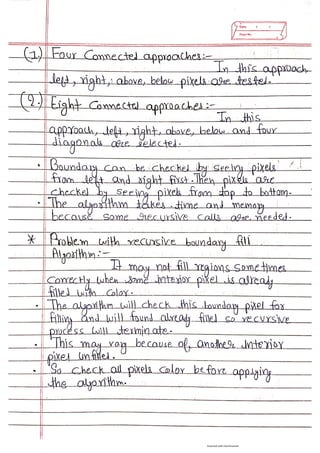 (1) Four Connected approaches:-
In this approach
left, right, above, below pixels are tested.
(2.) Eight Connected approaches:-
In this
approach, left, right, above, below and four
diagonals are selected.
• Boundary can be checked by seeing pixels
from left and right first. Then pixels are
checked by seeing pixels from top to bottom.
• The algorithm takes time and memory
because some recursive calls are needed.
* Problem with recursive boundary fill
Algorithm:-
It may not fill regions sometimes
correctly when some interior pixel is already
filled with color.
• The algorithm will check this boundary pixel for
filling and will found already filled so recursive
process will terminate.
• This may vary because of another interior
pixel unfilled.
• So check all pixels color before applying
the algorithm.